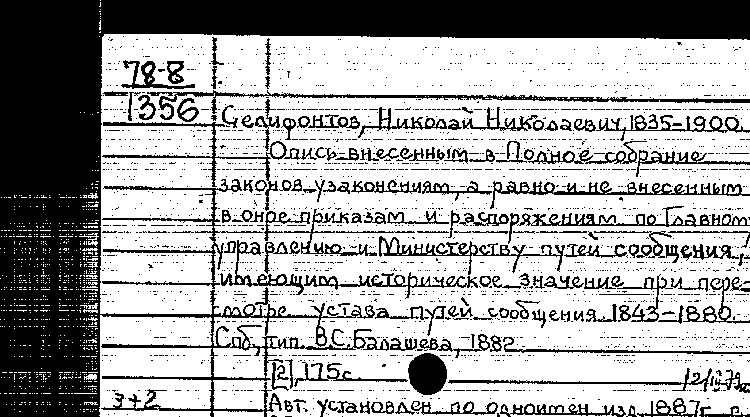 78-8
1356
Селифонтов, Николай Николаевич, 1835-1900.
Опись внесенным в Полное собрание
законов узаконениям, а равно и не внесенным
в оное приказам и распоряжениям по Главном
управлению и Министерству путей сообщения,
имеющим историческое значение при пере
смотре устава путей сообщения 1843-1880.
Спб, тип. В.С. Балашева, 1882
[2], 175с
3+2
Авт. установлен по одноимен изд. 1887г.